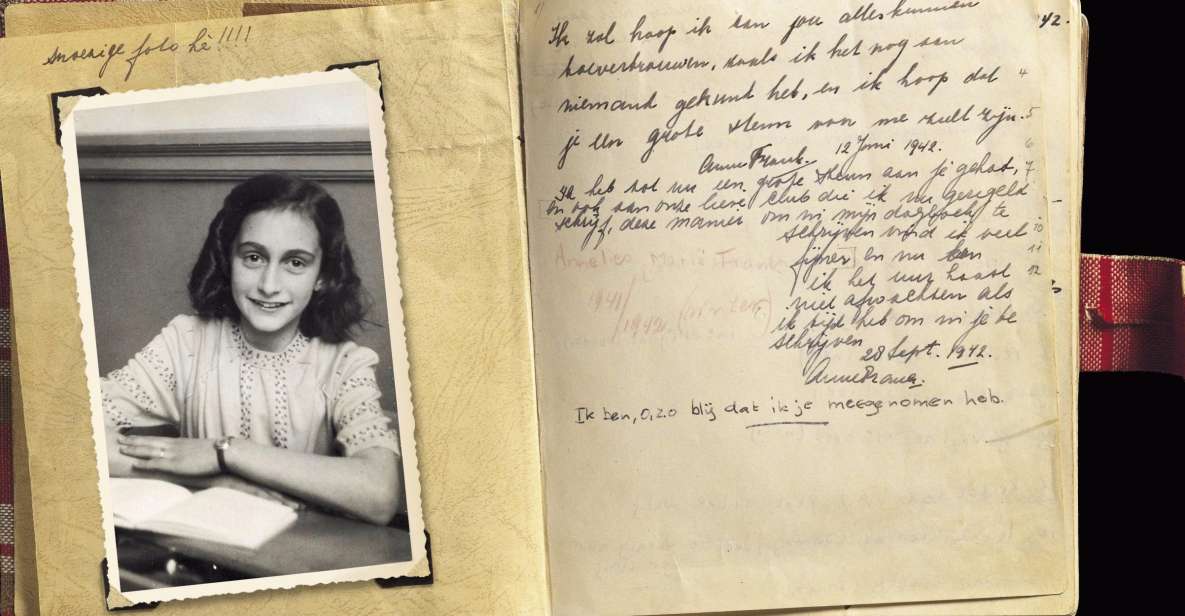 snoezige foto hè!!!!
Ik zal hoop ik aan jou alles kunnen
toevertrouwen, zoals ik het nog aan
niemand gekund heb, en ik hoop dat
je een grote steun voor me zult zijn.
Anne Frank. 12 Juni 1942.
Ik heb tot nu een grote steun aan je gehad,
en ook aan onze lieve club die ik nu geregeld
schrijf, deze manier om in mijn dagboek te
schrijven vind ik veel
fijner en nu kan
ik het uur haast
niet afwachten als
ik tijd heb om in je te
schrijven
28 Sept. 1942.
Anne Frank.
Ik ben, O, zo blij dat ik je meegenomen heb.
42.
4
5
6
7
10
11
12
Annelies Marie Frank
1941/
1942.